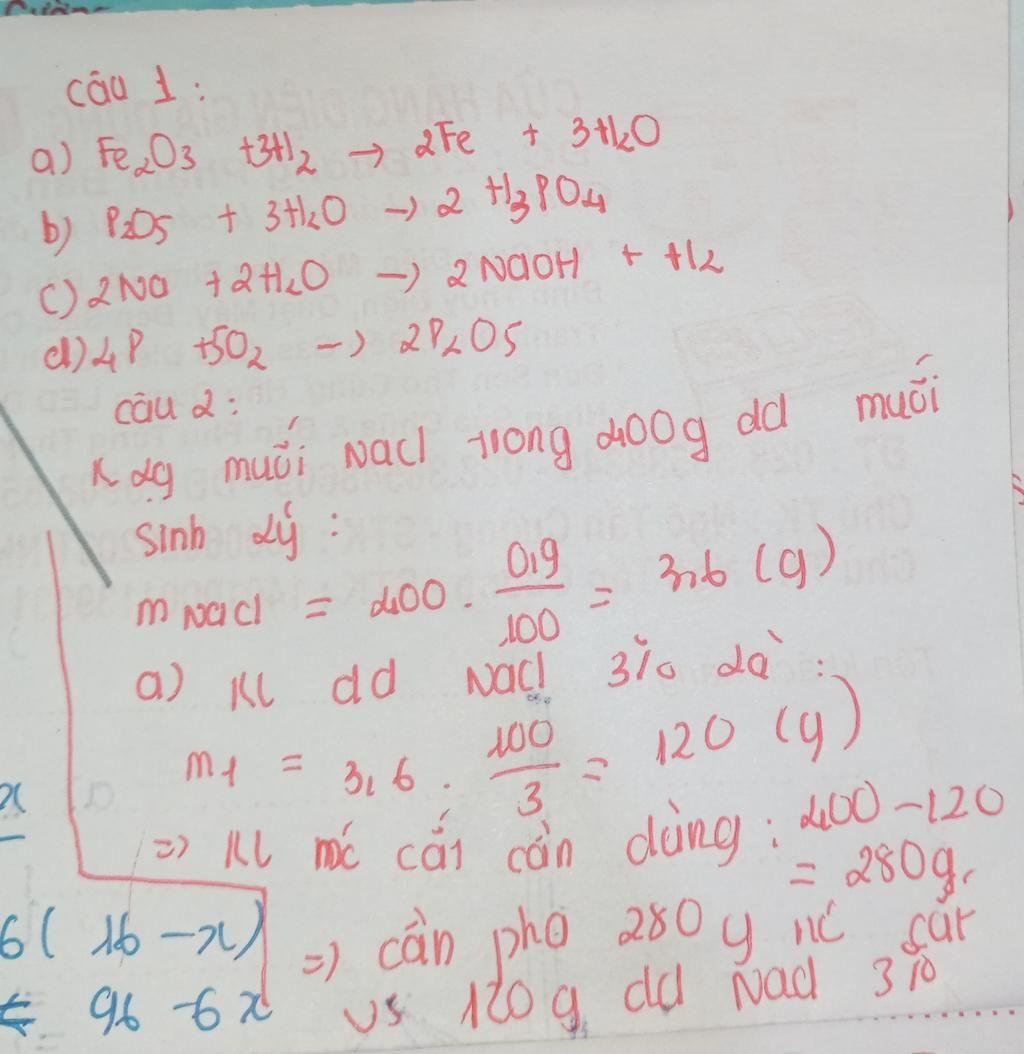 Câu 1:
a) Fe2O3 +3H2 → 2Fe + 3H2O
b) P2O5 + 3H2O → 2 H3PO4
c) 2Na + 2H2O → 2NaOH + H2
d) 4P +5O2 → 2P2O5
Câu 2:
muối NaCl trong 400g dd muối
sinh lý:
mNaCl = 400 . 0,9/100 = 3,6 (g)
a) KL dd NaCl 3% là:
m1 = 3,6 . 100/3 = 120 (g)
=> KL nc cất cần dùng: 400 - 120
= 280g.
=> cần pha 280 g nc cất
vs 120g dd NaCl 3%
x
6(16-x)
96-6x